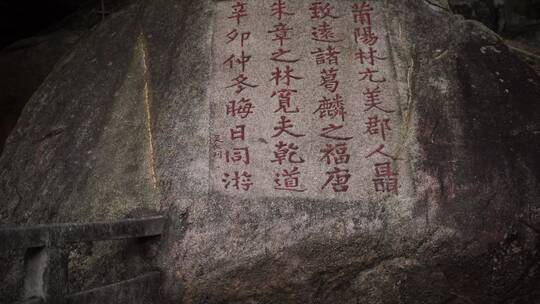 莆陽林亢美郡人聶
致遠諸葛麟之福唐
朱章之林寬夫乾道
辛卯仲冬晦日同游